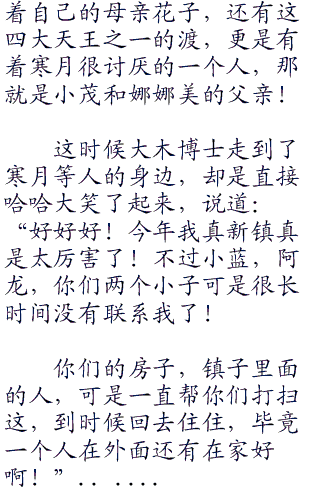 着自己的母亲花子，还有这
四大天王之一的渡，更是有
着寒月很讨厌的一个人，那
就是小茂和娜娜美的父亲！
这时候大木博士走到了
寒月等人的身边，却是直接
哈哈大笑了起来，说道：
“好好好！今年我真新镇真
是太厉害了！不过小蓝，阿
龙，你们两个小子可是很长
时间没有联系我了！
你们的房子，镇子里面
的人，可是一直帮你们打扫
这，到时候回去住住，毕竟
一个人在外面还有在家好
啊！”．．．．．．